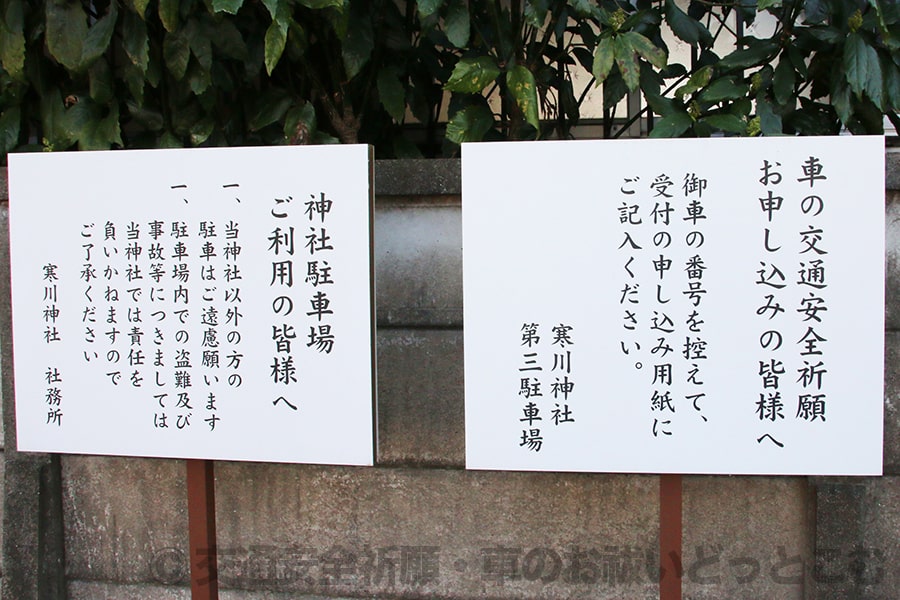 車の交通安全祈願
お申し込みの皆様へ
御車の番号を控えて、
受付の申し込み用紙に
ご記入ください。
寒川神社
第三駐車場
神社駐車場
ご利用の皆様へ
一、当神社以外の方の
駐車はご遠慮願います
一、駐車場内での盗難及び
事故等につきましては
当神社では責任を
負いかねますので
ご了承ください
寒川神社 社務所
© 交通安全祈願・車のお祓いどっとこむ